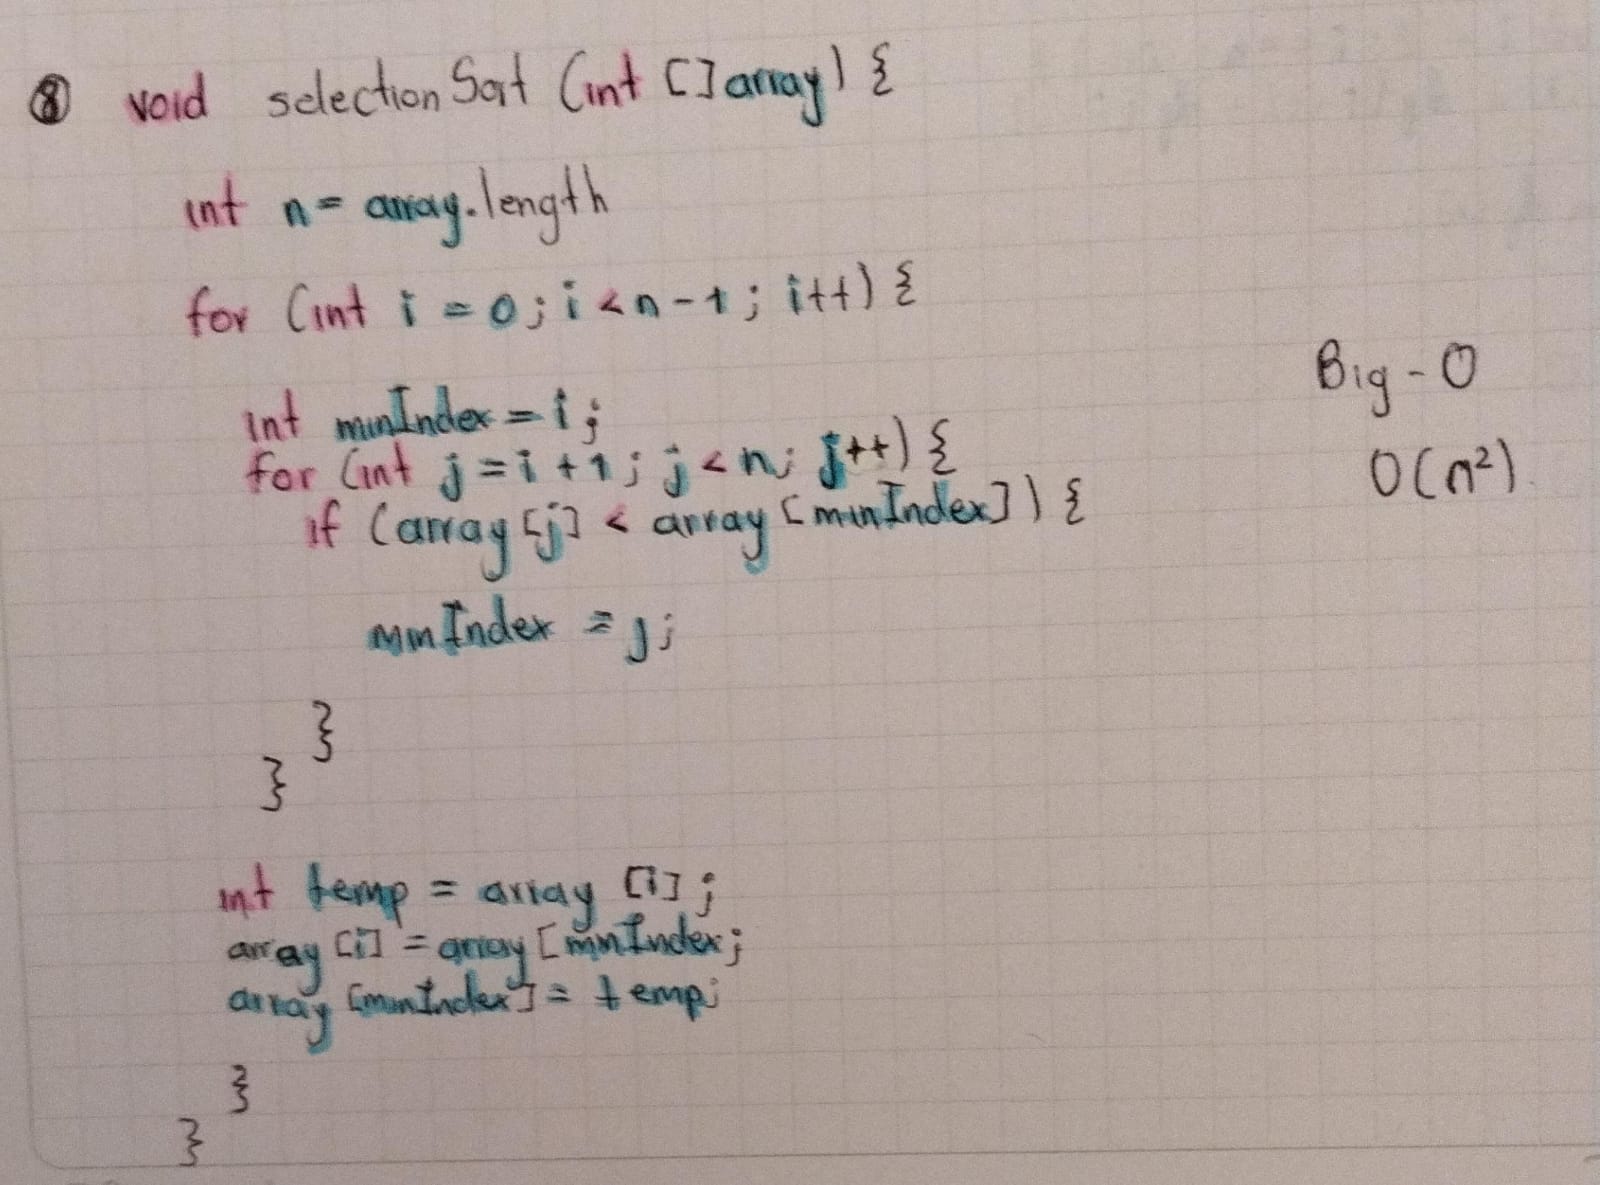 ⑧ void selectionSort (int []array) {
int n = array.length
for (int i = 0; i < n - 1; i++) {
int minIndex = i;
for (int j = i + 1; j < n; j++) {
if (array [j] < array [minIndex]) {
minIndex = j;
}
}
int temp = array [i];
array [i] = array [minIndex;
array [minIndex] = temp;
}
}
Big-O
O(n²)